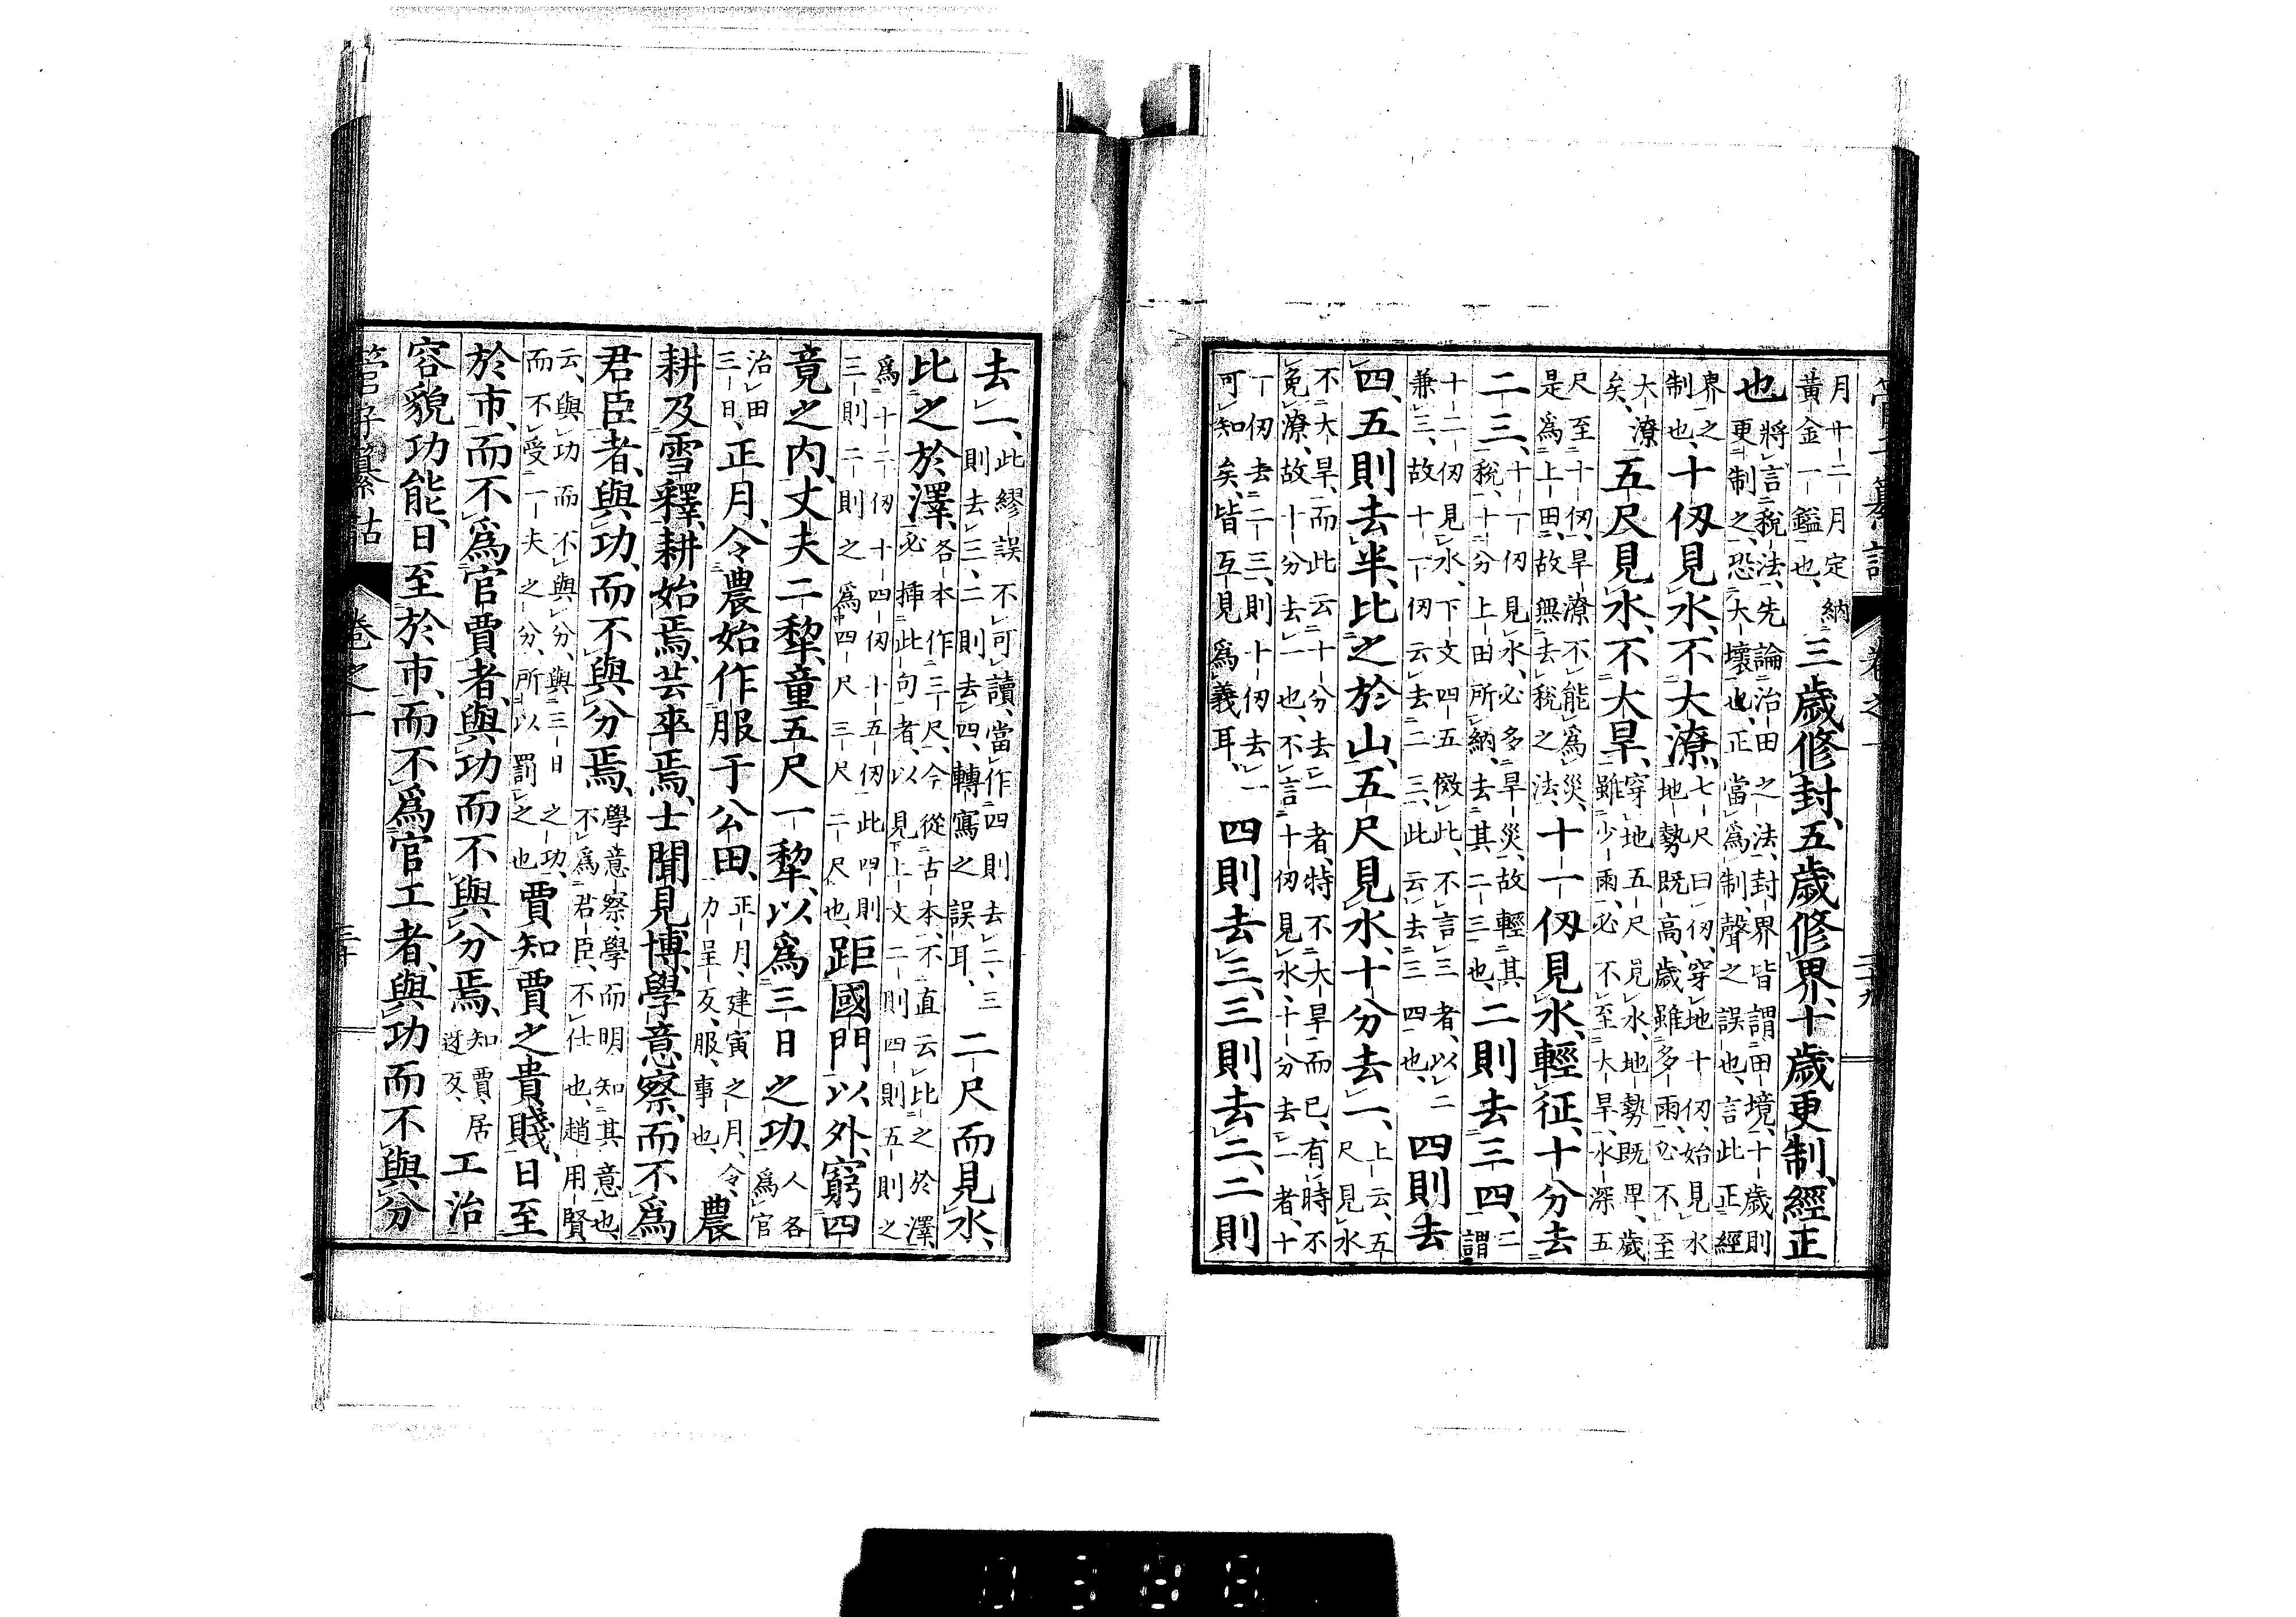 管子纂詁 卷之一 二十九
月廿二月定納黃金一鑑也、三歲修封、五歲修界、十歲更制、經正
也、將言稅法、先論治田之法、封界皆謂田境、十歲則更制之、恐大壞也、正當爲制聲之誤也、言此正經
界之制也、十仞見水、不大潦、七尺曰仞、穿地十仞、始見水地勢既高、歲雖多雨、必不至
大潦矣、五尺見水、不大旱、穿地五尺見水、地勢既卑、歲雖少雨、必不至大旱、水深五
尺至十仞、旱潦不能爲災、是爲上田、故無去稅之法、十一仞見水、輕征、十分去
二三、十一仞見水、必多旱災、故輕其稅、十分上田所納、去其二三也、二則去三四、二謂
十二仞見水、下文四五倣此、不言三者、以二兼三、故十一仞云去二三、此云去三四也、四則去
四、五則去半、比之於山、五尺見水、十分去一、上云、五尺見水
不大旱、而此云十分去一者、特不大旱而已、有時不免潦、故十分去一也、不言十仞見水、十分去一者、十
一仞去二三、則十仞去一可知矣、皆互見爲義耳、四則去三、三則去二、二則
去一、此繆誤不可讀、當作四則去二、三則去三、二則去四、轉寫之誤耳、二尺而見水、
比之於澤、各本作三尺、今從古本、不直云比之於澤必揷此句者、以見上文二則四則五則之
爲十二仞十四仞十五仞、此四則三則二則之爲四尺三尺二尺也、距國門以外、窮四
竟之內、丈夫二犂、童五尺一犂、以爲三日之功、人各爲官
治田三日、正月、令農始作、服于公田、正月、建寅之月、令、力呈反、服、事也、農
耕及雪釋、耕始焉、芸卒焉、士聞見博、學意察、而不爲
君臣者、與功、而不與分焉、學意察、學而明知其意也不爲君臣、不仕也、趙用賢
云、與功而不與分、與三日之功、而不受一夫之分、所以罰之也賈知賈之貴賤、日至
於市、而不爲官賈者、與功而不與分焉、知賈、居迓反、工治
容貌功能、日至於市、而不爲官工者、與功而不與分
管子纂詁 卷之一 三十